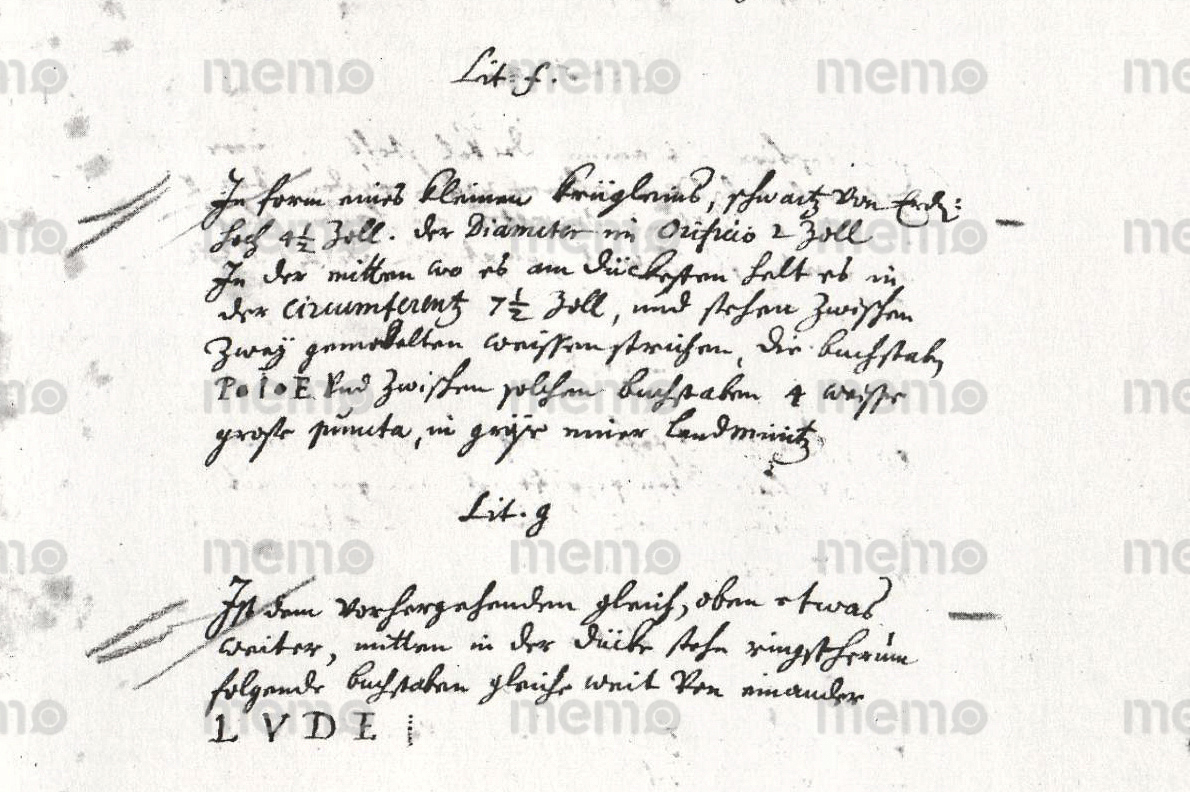 Lit. f.
In form eines kleinen krügleins, schwartz von Erd:
hoch 4½ Zoll. der Diameter im Orificio 2 Zoll
In der mitten wo es am dückesten helt es in
der circumferentz 7½ Zoll, und stehen zwischen
zweÿ gemahlten weissen strichen, die buchstaben
P•I•E und zwischen solchen buchstaben 4 weisse
grosse puncta, in größe einer Landmüntz
Lit. g
Ist dem vorhergehenden gleich, oben etwas
weiter, mitten in der dücke stehn ringstherum
folgende buchstaben gleiche weit von einander
L V D E
memo